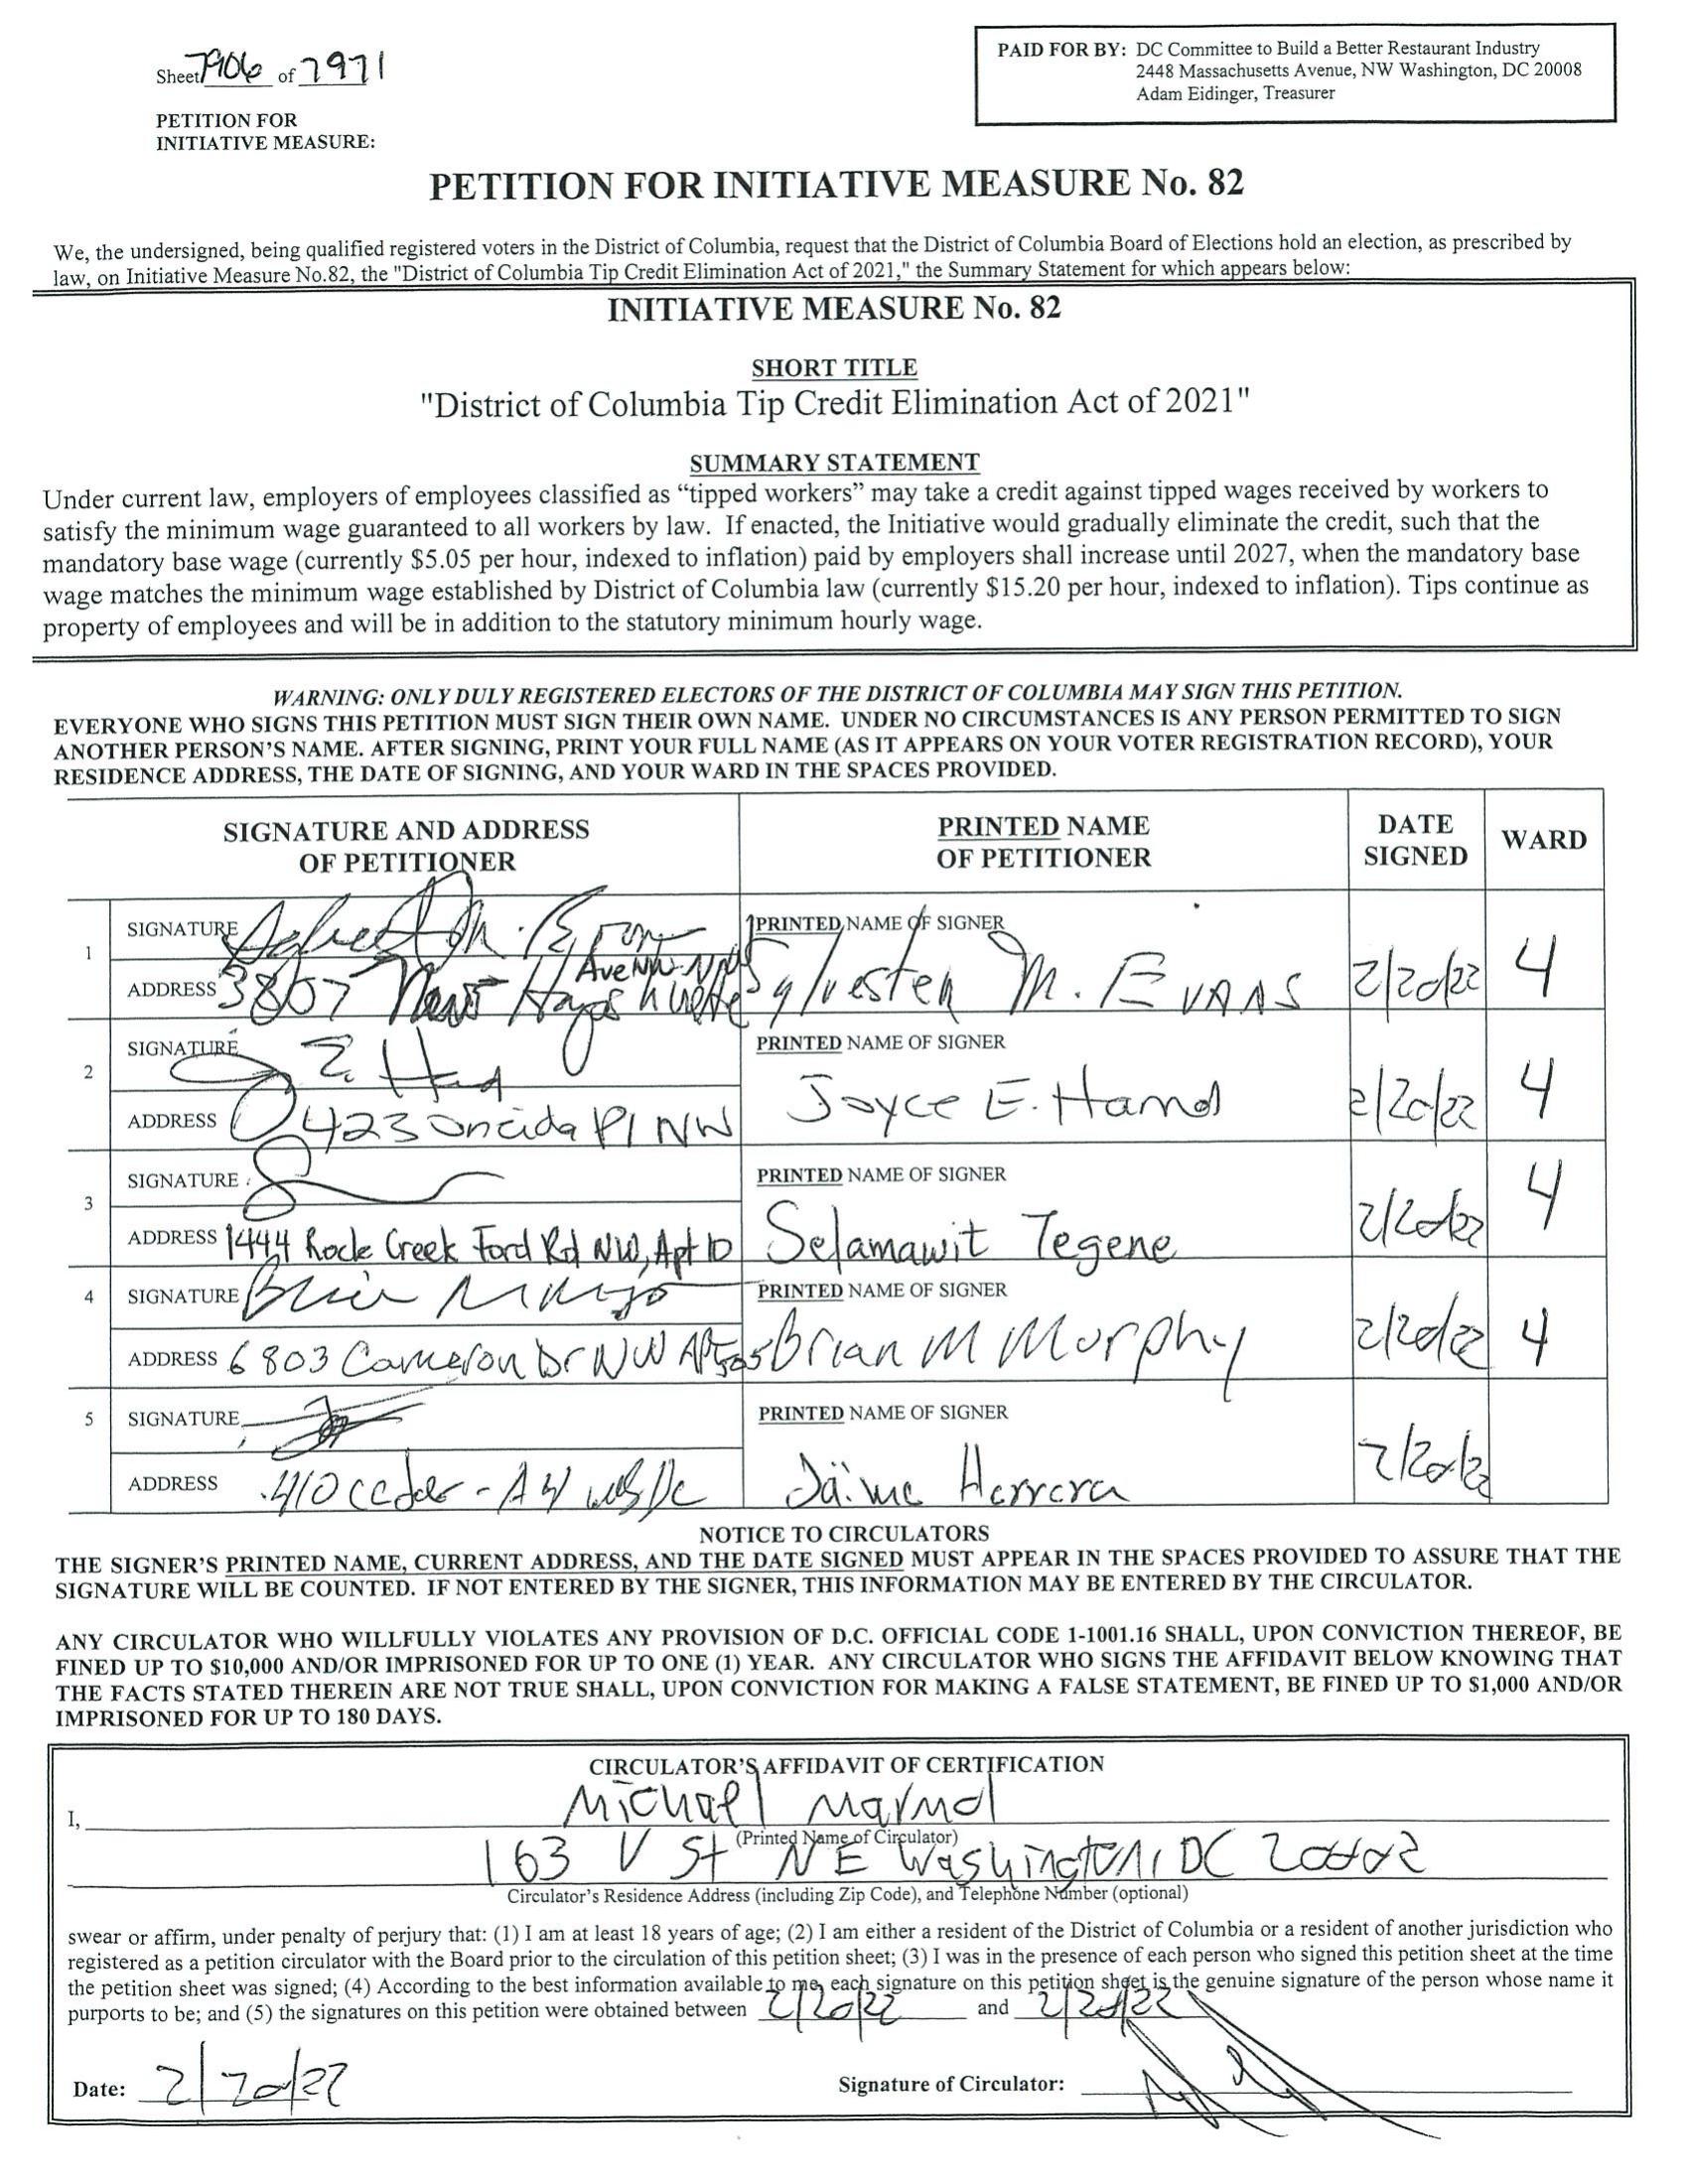 Sheet 7906 of 7971
PAID FOR BY: DC Committee to Build a Better Restaurant Industry
2448 Massachusetts Avenue, NW Washington, DC 20008
Adam Eidinger, Treasurer
PETITION FOR
INITIATIVE MEASURE:
PETITION FOR INITIATIVE MEASURE No. 82
We, the undersigned, being qualified registered voters in the District of Columbia, request that the District of Columbia Board of Elections hold an election, as prescribed by
law, on Initiative Measure No.82, the "District of Columbia Tip Credit Elimination Act of 2021," the Summary Statement for which appears below:
INITIATIVE MEASURE No. 82
SHORT TITLE
"District of Columbia Tip Credit Elimination Act of 2021"
SUMMARY STATEMENT
Under current law, employers of employees classified as “tipped workers” may take a credit against tipped wages received by workers to
satisfy the minimum wage guaranteed to all workers by law. If enacted, the Initiative would gradually eliminate the credit, such that the
mandatory base wage (currently $5.05 per hour, indexed to inflation) paid by employers shall increase until 2027, when the mandatory base
wage matches the minimum wage established by District of Columbia law (currently $15.20 per hour, indexed to inflation). Tips continue as
property of employees and will be in addition to the statutory minimum hourly wage.
WARNING: ONLY DULY REGISTERED ELECTORS OF THE DISTRICT OF COLUMBIA MAY SIGN THIS PETITION.
EVERYONE WHO SIGNS THIS PETITION MUST SIGN THEIR OWN NAME. UNDER NO CIRCUMSTANCES IS ANY PERSON PERMITTED TO SIGN
ANOTHER PERSON’S NAME. AFTER SIGNING, PRINT YOUR FULL NAME (AS IT APPEARS ON YOUR VOTER REGISTRATION RECORD), YOUR
RESIDENCE ADDRESS, THE DATE OF SIGNING, AND YOUR WARD IN THE SPACES PROVIDED.
SIGNATURE AND ADDRESS
OF PETITIONER
PRINTED NAME
OF PETITIONER
DATE
SIGNED
WARD
1
SIGNATURE
ADDRESS 3807 New Ave NW
PRINTED NAME OF SIGNER
Sylvester M. EVANS
2/20/22
4
2
SIGNATURE
ADDRESS 423 Oneida Pl NW
PRINTED NAME OF SIGNER
Joyce E. Hamd
2/20/22
4
3
SIGNATURE
ADDRESS 1444 Rock Creek Ford Rd NW, Apt 10
PRINTED NAME OF SIGNER
Selamawit Tegene
2/20/22
4
4
SIGNATURE
ADDRESS 6803 Cameron Dr NW APT 505
PRINTED NAME OF SIGNER
Brian M Murphy
2/20/22
4
5
SIGNATURE
ADDRESS 410 ceder - A4 DC
PRINTED NAME OF SIGNER
Jaime Herrera
2/20/22
NOTICE TO CIRCULATORS
THE SIGNER’S PRINTED NAME, CURRENT ADDRESS, AND THE DATE SIGNED MUST APPEAR IN THE SPACES PROVIDED TO ASSURE THAT THE
SIGNATURE WILL BE COUNTED. IF NOT ENTERED BY THE SIGNER, THIS INFORMATION MAY BE ENTERED BY THE CIRCULATOR.
ANY CIRCULATOR WHO WILLFULLY VIOLATES ANY PROVISION OF D.C. OFFICIAL CODE 1-1001.16 SHALL, UPON CONVICTION THEREOF, BE
FINED UP TO $10,000 AND/OR IMPRISONED FOR UP TO ONE (1) YEAR. ANY CIRCULATOR WHO SIGNS THE AFFIDAVIT BELOW KNOWING THAT
THE FACTS STATED THEREIN ARE NOT TRUE SHALL, UPON CONVICTION FOR MAKING A FALSE STATEMENT, BE FINED UP TO $1,000 AND/OR
IMPRISONED FOR UP TO 180 DAYS.
CIRCULATOR’S AFFIDAVIT OF CERTIFICATION
I, Michael Marmol
(Printed Name of Circulator)
163 V St NE Washington, DC 20002
Circulator’s Residence Address (including Zip Code), and Telephone Number (optional)
swear or affirm, under penalty of perjury that: (1) I am at least 18 years of age; (2) I am either a resident of the District of Columbia or a resident of another jurisdiction who
registered as a petition circulator with the Board prior to the circulation of this petition sheet; (3) I was in the presence of each person who signed this petition sheet at the time
the petition sheet was signed; (4) According to the best information available to me, each signature on this petition sheet is the genuine signature of the person whose name it
purports to be; and (5) the signatures on this petition were obtained between 2/20/22 and 2/20/22
Date: 2/20/22
Signature of Circulator: